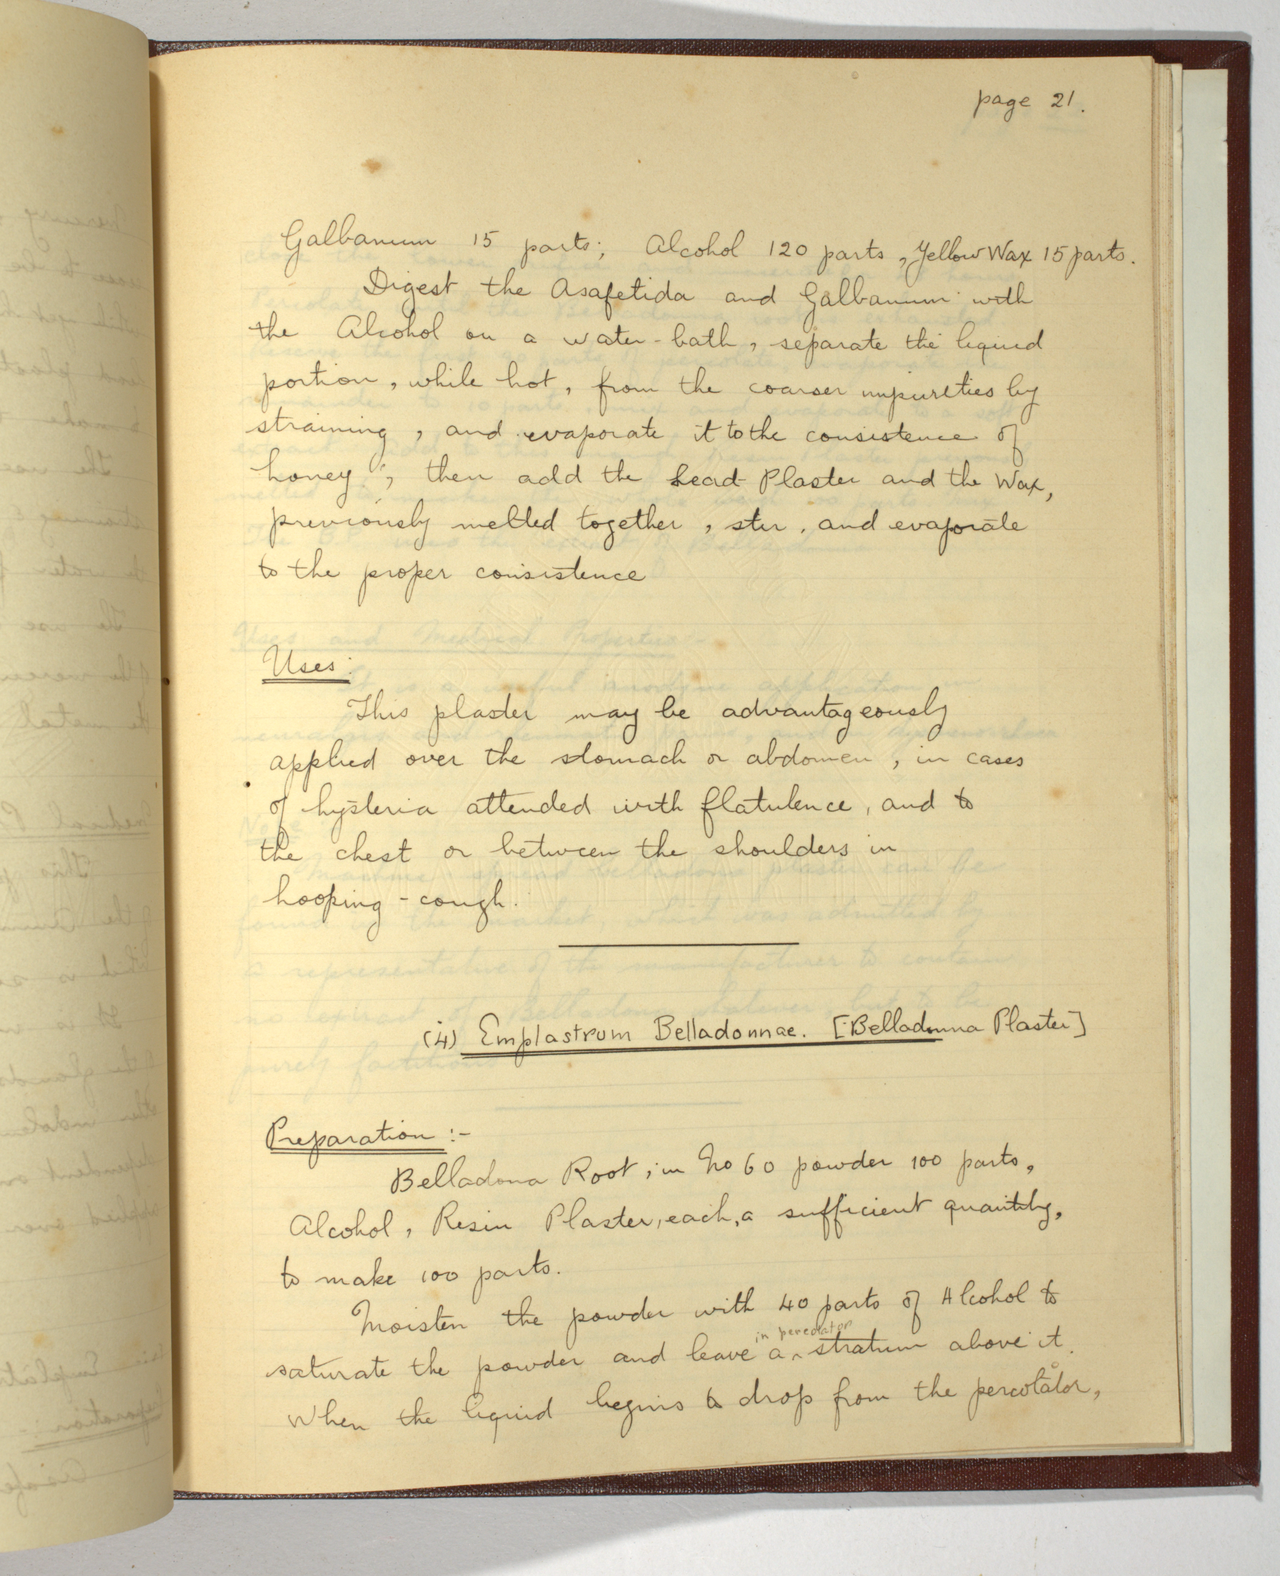 page 21.
Galbanum 15 parts; Alcohol 120 parts, Yellow Wax 15 parts.
Digest the Asafetida and Galbanum with
the Alcohol on a water-bath, separate the liquid
portion, while hot, from the coarser impurities by
straining, and evaporate it to the consistence of
honey; then add the Lead Plaster and the Wax,
previously melted together, stir, and evaporate
to the proper consistence
Uses:
This plaster may be advantageously
applied over the stomach or abdomen, in cases
of hysteria attended with flatulence, and to
the chest or between the shoulders in
hooping-cough.
(4) Emplastrum Belladonnae. [Belladonna Plaster]
Preparation :-
Belladona Root, in No 60 powder 100 parts,
Alcohol, Resin Plaster, each, a sufficient quantity,
to make 100 parts.
Moisten the powder with 40 parts of Alcohol to
in percolator
saturate the powder and leave a ^ stratum above it.
When the liquid begins to drop from the percolator,